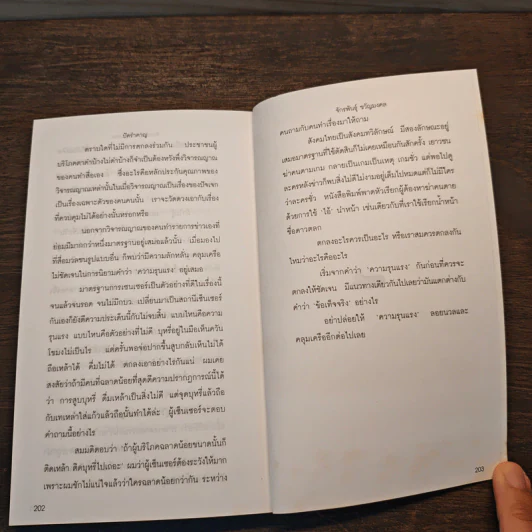 ปิดรำคาญ
ตราบใดที่ไม่มีการตกลงร่วมกัน ประชาชนผู้
บริโภคตาดำบ้างไม่ดำบ้างก็จำเป็นต้องหวังพึ่งวิจารณญาณ
ของคนทำสื่อเอง ซึ่งอะไรคือหลักประกันคุณภาพของ
วิจารณญาณเหล่านั้นในเมื่อวิจารณญาณเป็นเรื่องของปัจเจก
เป็นเรื่องเฉพาะตัวของคนคนนั้น เราจะวัดดวงเอากับเรื่อง
ที่ควบคุมไม่ได้อย่างนั้นหรอกหรือ
นอกจากวิจารณญาณของคนทำรายการข่าวเองที่
ย่อมมีมากกว่าหนึ่งมาตรฐานอยู่เสมอแล้วนั้น เมื่อมองไป
ที่สื่อมวลชนรูปแบบอื่น ก็พบว่ามีความลักหลั่น คลุมเครือ
ไม่ชัดเจนในการนิยามคำว่า 'ความรุนแรง' อยู่เสมอ
มาตรฐานการเซนเซอร์เป็นตัวอย่างที่ดีในเรื่องนี้
จนแล้วจนรอด จนไม่มีกบว. เปลี่ยนมาเป็นสถานีเซ็นเซอร์
กันเองก็ยังตีความประเด็นนี้กันไม่จบสิ้น แบบไหนคือความ
รุนแรง แบบไหนคือตัวอย่างที่ไม่ดี บุหรี่อยู่ในมือเห็นควัน
โขมงไม่เป็นไร แต่ครั้นพอจ่อปากขึ้นสูบกลับเห็นไม่ได้
ถือเหล้าได้ ดื่มไม่ได้ ตกลงเอาอย่างไรกันแน่ ผมเคย
สงสัยว่าถ้ามีคนที่ฉลาดน้อยที่สุดตีความปรากฏการณ์นี้ได้
ว่า การสูบบุหรี่ ดื่มเหล้าเป็นสิ่งไม่ดี แต่จุดบุหรี่แล้วถือ
กับเทเหล้าใส่แก้วแล้วถือนั้นทำได้ล่ะ ผู้เซ็นเซอร์จะตอบ
คำถามนี้อย่างไร
สมมติตอบว่า 'ถ้าผู้บริโภคฉลาดน้อยขนาดนั้นก็
ติดเหล้า ติดบุหรี่ไปเถอะ' ผมว่าผู้เซ็นเซอร์ต้องระวังให้มาก
เพราะผมชักไม่แน่ใจแล้วว่าใครฉลาดน้อยกว่ากัน ระหว่าง
202
จักรพันธุ์ ขวัญมงคล
คนถามกับคนทำเรื่องมาให้ถาม
สังคมไทยเป็นสังคมทวิลักษณ์ มีสองลักษณะอยู่
เสมอมาตรฐานที่ใช้ตัดสินก็ไม่เคยเหมือนกันสักครั้ง เยาวชน
ฆ่าคนตามเกม กลายเป็นเกมเป็นเหตุ เกมชั่ว แต่พอไปดู
ละครหลังข่าวก็พบสิ่งไม่ดีไม่งามอยู่เต็มไปหมดแต่ก็ไม่มีใคร
ว่าละครชั่ว หนังสือพิมพ์พาดหัวเรียกผู้ต้องหาฆ่าคนตาย
ด้วยการใช้ 'ไอ้' นำหน้า เช่นเดียวกับที่เราใช้เรียกนำหน้า
ชื่อดาวตลก
ตกลงอะไรควรเป็นอะไร หรือเราสมควรตกลงกัน
ไหมว่าอะไรคืออะไร
เริ่มจากคำว่า 'ความรุนแรง' กันก่อนที่ควรจะ
ตกลงให้ชัดเจน มีแนวทางเดียวกันไปเลยว่ามันแตกต่างกับ
คำว่า 'ข้อเท็จจริง' อย่างไร
อย่าปล่อยให้ 'ความรุนแรง' ลอยนวลและ
คลุมเครืออีกต่อไปเลย
203